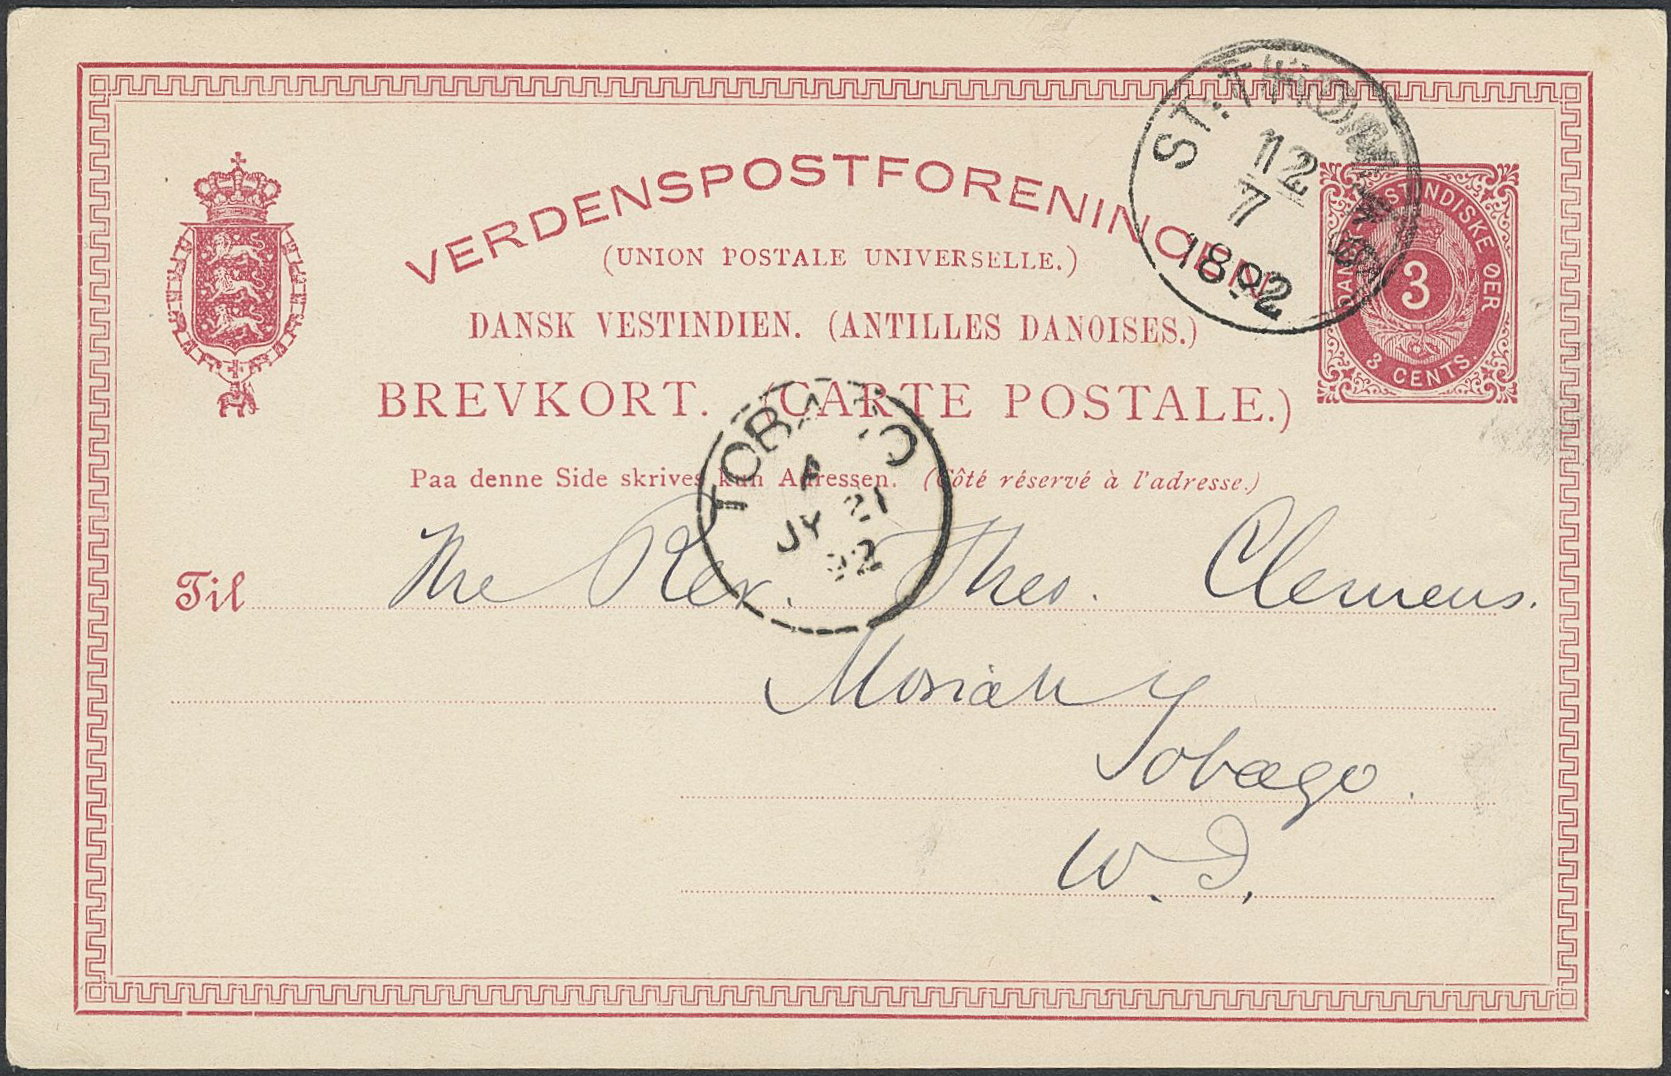 VERDENSPOSTFORENINGEN
(UNION POSTALE UNIVERSELLE.)
DANSK VESTINDIEN. (ANTILLES DANOISES.)
BREVKORT. (CARTE POSTALE.)
Paa denne Side skrives kun Adressen. (Côté réservé à l'adresse.)
ST. THOMAS
12
7
1892
DANSK VESTINDISKE ØER
3
3 CENTS
TOBAGO
A
JY 21
92
Til The Rev. Theo. Clemens.
Moriah
Tobago.
W. I.